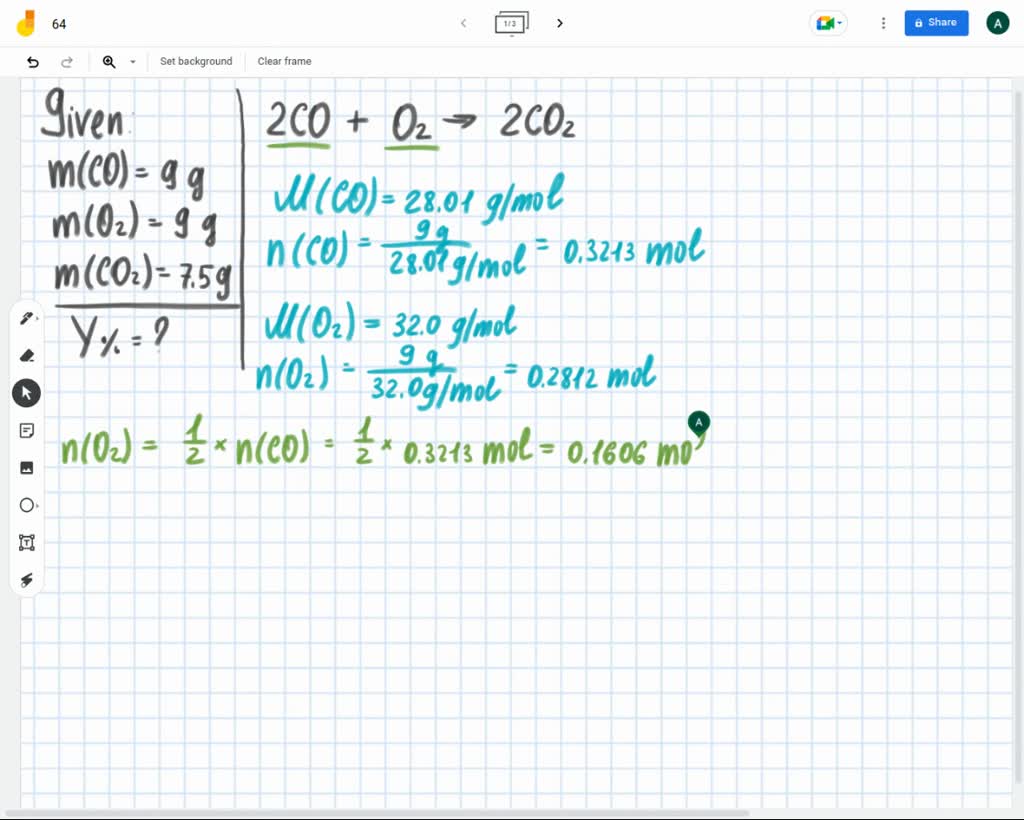 64
1/3
Share
A
Set background
Clear frame
Given:
m(CO) = 9 g
m(O₂) = 9 g
m(CO₂) = 7.5g
Y% = ?
2CO + O₂ → 2CO₂
M(CO) = 28.01 g/mol
n(CO) = 9g / 28.01g/mol = 0.3213 mol
M(O₂) = 32.0 g/mol
n(O₂) = 9 g / 32.0g/mol = 0.2812 mol
A
n(O₂) = 1/2 × n(CO) = 1/2 × 0.3213 mol = 0.1606 mol